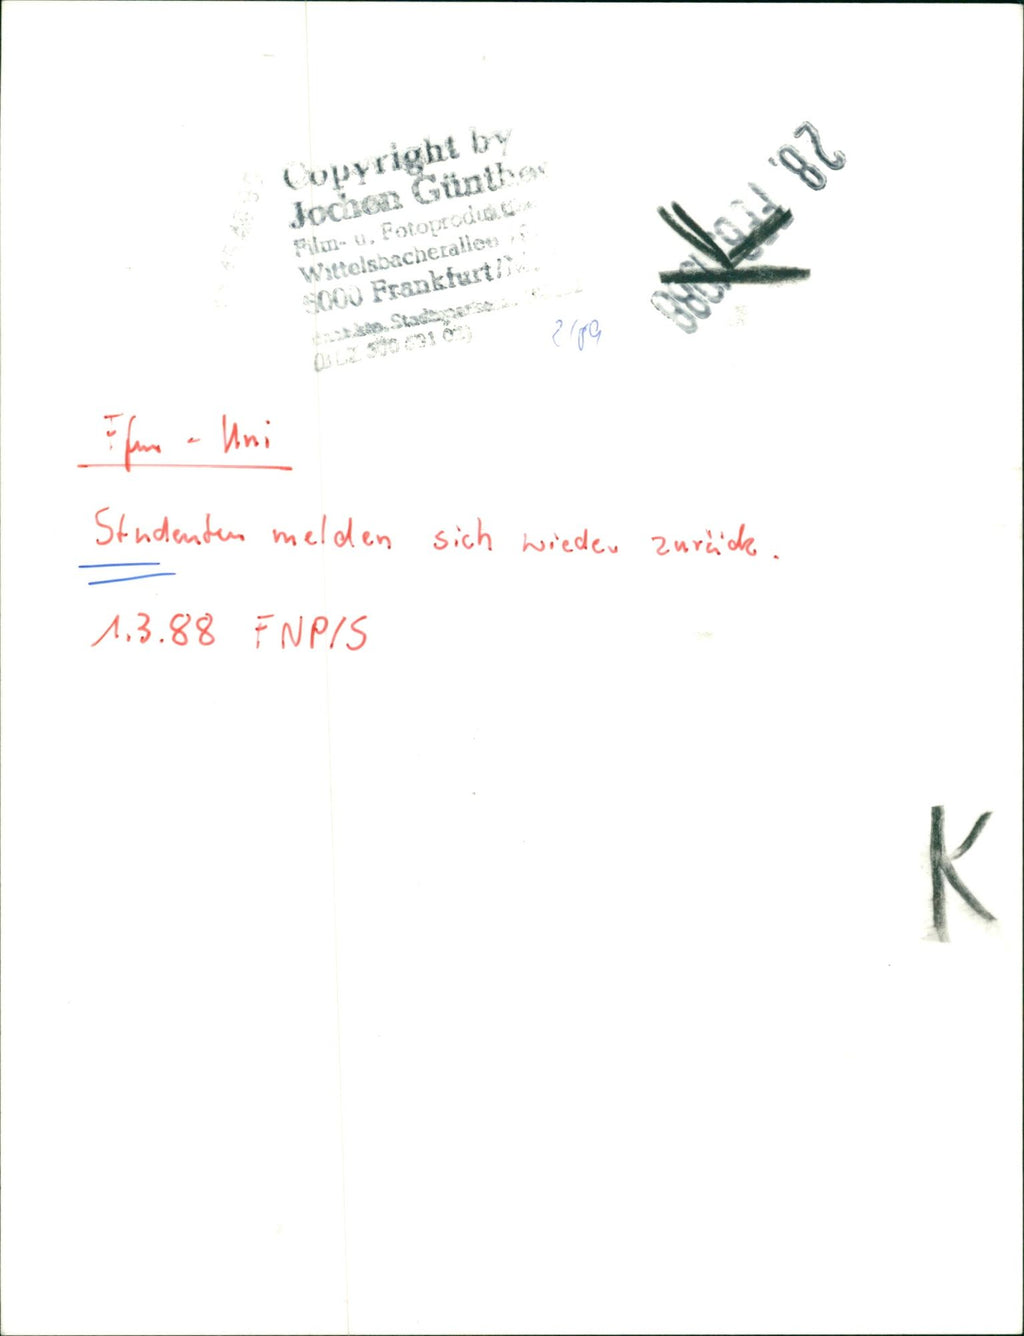 Copyright by
Jochen Günther
Film- u. Fotoproduktion
Wittelsbacherallee
6000 Frankfurt/M.
Stadtsparkasse
28. FEB. 1988
2/89
Ffm - Uni
Studenten melden sich wieder zurück.
1.3.88 FNP/S
K